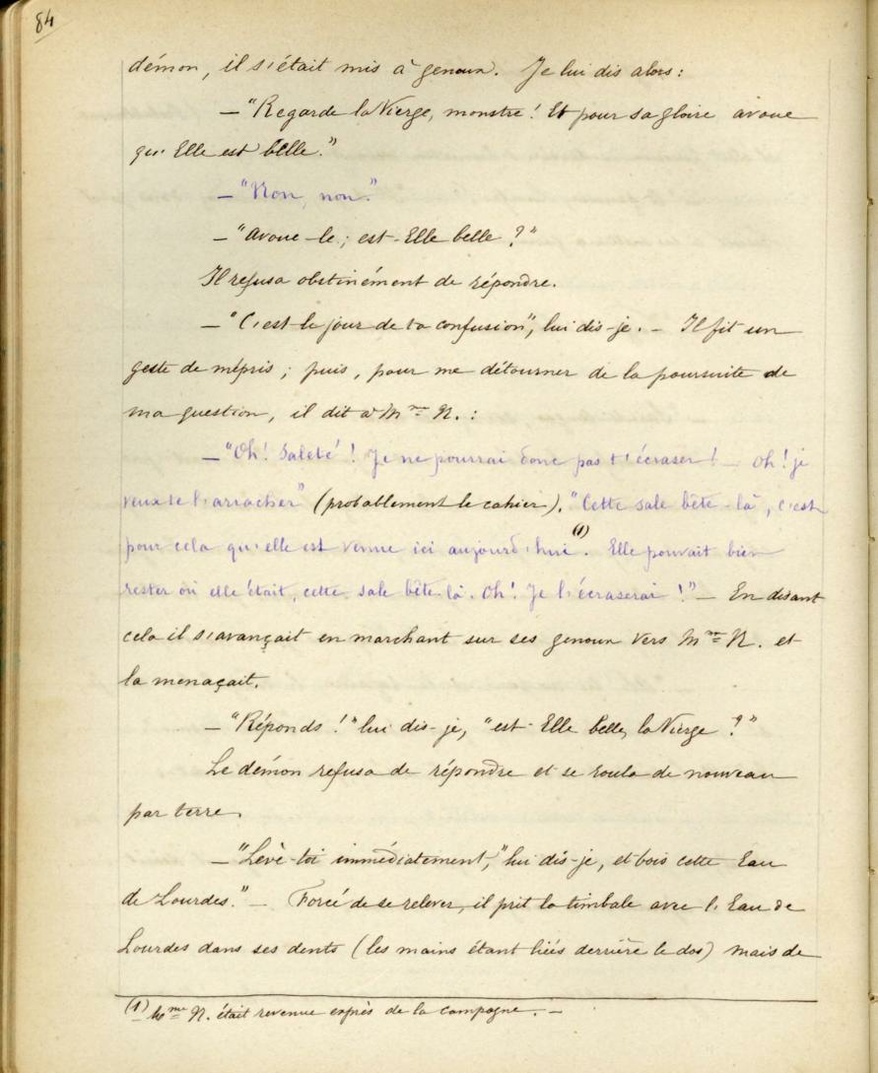 84
démon, il s'était mis à genoux. Je lui dis alors :
— "Regarde la Vierge, monstre ! Et pour sa gloire avoue
qu'Elle est belle."
— "Non, non."
— "Avoue-le ; est-Elle belle ?"
Il refusa obstinément de répondre.
— "C'est le jour de ta confusion", lui dis-je. — Il fit un
geste de mépris ; puis, pour me détourner de la poursuite de
ma question, il dit à Mme N. :
— "Oh ! Saleté ! Je ne pourrai donc pas t'écraser ! — Oh ! je
veux te l'arracher" (probablement le cahier). "Cette sale bête-là, c'est
pour cela qu'elle est venue ici aujourd'hui (1). Elle pouvait bien
rester où elle était, cette sale bête là. Oh ! Je l'écraserai !" — En disant
cela il s'avançait en marchant sur ses genoux vers Mme N. et
la menaçait.
— "Réponds !" lui dis-je, "est-Elle belle, la Vierge ?"
Le démon refusa de répondre et se roula de nouveau
par terre.
— "Lève-toi immédiatement," lui dis-je, et bois cette Eau
de Lourdes." — Forcé de se relever, il prit la timbale avec l'Eau de
Lourdes dans ses dents (les mains étant liées derrière le dos) mais de
(1) Mme N. était revenue exprès de la campagne. —